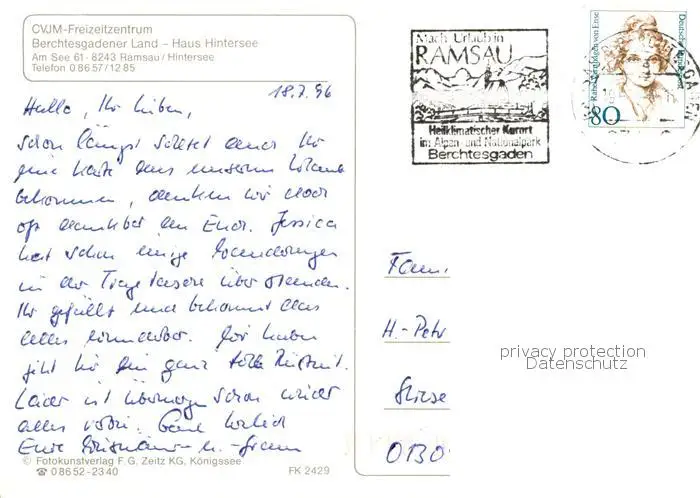 CVJM-Freizeitzentrum
Berchtesgadener Land – Haus Hintersee
Am See 61 · 8243 Ramsau / Hintersee
Telefon 0 86 57 / 12 85
18.7.96
Hallo, Ihr Lieben,
schon längst solltet auch Ihr
eine Karte aus unserem Urlaub
bekommen, denken wir doch
oft dankbar an Euch. Jessica
hat schon einige Wanderungen
in der Tragetasche überstanden.
Ihr gefällt und bekommt das
alles wunderbar. Wir haben
hier eine ganz tolle Freizeit.
Leider ist übermorgen schon wieder
alles vorbei. Ganz herzlich
Eure
© Fotokunstverlag F. G. Zeitz KG, Königssee
☎ 0 86 52 - 23 40
FK 2429
Mach Urlaub in
RAMSAU
Heilklimatischer Kurort
im Alpen- und Nationalpark
Berchtesgaden
Rahel Varnhagen von Ense
Deutsche Bundespost
80
Fam.
H.-Petr
0130
privacy protection
Datenschutz